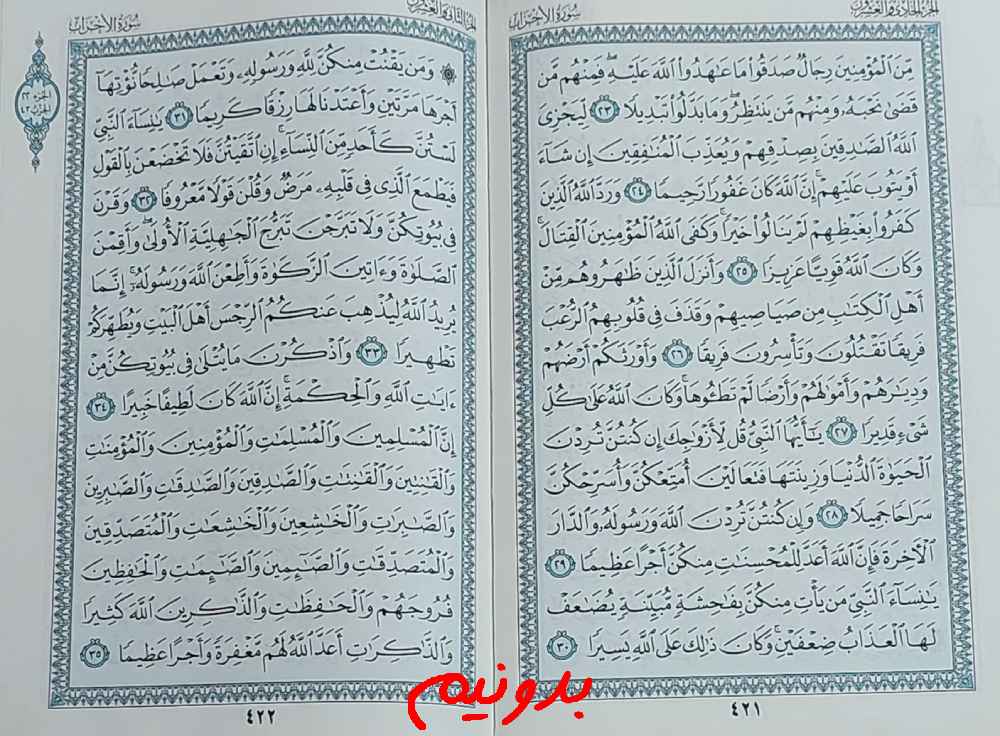 الجزء الحادي والعشرون
سورة الأحزاب
مِّنَ ٱلْمُؤْمِنِينَ رِجَالٌ صَدَقُوا۟ مَا عَٰهَدُوا۟ ٱللَّهَ عَلَيْهِ ۖ فَمِنْهُم مَّن
قَضَىٰ نَحْبَهُۥ وَمِنْهُم مَّن يَنتَظِرُ ۖ وَمَا بَدَّلُوا۟ تَبْدِيلًا ٢٣ لِّيَجْزِىَ
ٱللَّهُ ٱلصَّٰدِقِينَ بِصِدْقِهِمْ وَيُعَذِّبَ ٱلْمُنَٰفِقِينَ إِن شَآءَ
أَوْ يَتُوبَ عَلَيْهِمْ ۚ إِنَّ ٱللَّهَ كَانَ غَفُورًا رَّحِيمًا ٢٤ وَرَدَّ ٱللَّهُ ٱلَّذِينَ
كَفَرُوا۟ بِغَيْظِهِمْ لَمْ يَنَالُوا۟ خَيْرًا ۚ وَكَفَى ٱللَّهُ ٱلْمُؤْمِنِينَ ٱلْقِتَالَ ۚ
وَكَانَ ٱللَّهُ قَوِيًّا عَزِيزًا ٢٥ وَأَنزَلَ ٱلَّذِينَ ظَٰهَرُوهُم مِّنْ
أَهْلِ ٱلْكِتَٰبِ مِن صَيَاصِيهِمْ وَقَذَفَ فِى قُلُوبِهِمُ ٱلرُّعْبَ
فَرِيقًا تَقْتُلُونَ وَتَأْسِرُونَ فَرِيقًا ٢٦ وَأَوْرَثَكُمْ أَرْضَهُمْ
وَدِيَٰرَهُمْ وَأَمْوَٰلَهُمْ وَأَرْضًا لَّمْ تَطَـُٔوهَا ۚ وَكَانَ ٱللَّهُ عَلَىٰ كُلِّ
شَىْءٍ قَدِيرًا ٢٧ يَٰٓأَيُّهَا ٱلنَّبِىُّ قُل لِّأَزْوَٰجِكَ إِن كُنتُنَّ تُرِدْنَ
ٱلْحَيَوٰةَ ٱلدُّنْيَا وَزِينَتَهَا فَتَعَالَيْنَ أُمَتِّعْكُنَّ وَأُسَرِّحْكُنَّ
سَرَاحًا جَمِيلًا ٢٨ وَإِن كُنتُنَّ تُرِدْنَ ٱللَّهَ وَرَسُولَهُۥ وَٱلدَّارَ
ٱلْءَاخِرَةَ فَإِنَّ ٱللَّهَ أَعَدَّ لِلْمُحْسِنَٰتِ مِنكُنَّ أَجْرًا عَظِيمًا ٢٩
يَٰنِسَآءَ ٱلنَّبِىِّ مَن يَأْتِ مِنكُنَّ بِفَٰحِشَةٍ مُّبَيِّنَةٍ يُضَٰعَفْ
لَهَا ٱلْعَذَابُ ضِعْفَيْنِ ۚ وَكَانَ ذَٰلِكَ عَلَى ٱللَّهِ يَسِيرًا ٣٠
٤٢١
الجزء الثاني والعشرون
سورة الأحزاب
وَمَن يَقْنُتْ مِنكُنَّ لِلَّهِ وَرَسُولِهِۦ وَتَعْمَلْ صَٰلِحًا نُّؤْتِهَآ
أَجْرَهَا مَرَّتَيْنِ وَأَعْتَدْنَا لَهَا رِزْقًا كَرِيمًا ٣١ يَٰنِسَآءَ ٱلنَّبِىِّ
لَسْتُنَّ كَأَحَدٍ مِّنَ ٱلنِّسَآءِ ۚ إِنِ ٱتَّقَيْتُنَّ فَلَا تَخْضَعْنَ بِٱلْقَوْلِ
فَيَطْمَعَ ٱلَّذِى فِى قَلْبِهِۦ مَرَضٌ وَقُلْنَ قَوْلًا مَّعْرُوفًا ٣٢ وَقَرْنَ
فِى بُيُوتِكُنَّ وَلَا تَبَرَّجْنَ تَبَرُّجَ ٱلْجَٰهِلِيَّةِ ٱلْأُولَىٰ ۖ وَأَقِمْنَ
ٱلصَّلَوٰةَ وَءَاتِينَ ٱلزَّكَوٰةَ وَأَطِعْنَ ٱللَّهَ وَرَسُولَهُۥٓ ۚ إِنَّمَا
يُرِيدُ ٱللَّهُ لِيُذْهِبَ عَنكُمُ ٱلرِّجْسَ أَهْلَ ٱلْبَيْتِ وَيُطَهِّرَكُمْ
تَطْهِيرًا ٣٣ وَٱذْكُرْنَ مَا يُتْلَىٰ فِى بُيُوتِكُنَّ مِنْ
ءَايَٰتِ ٱللَّهِ وَٱلْحِكْمَةِ ۚ إِنَّ ٱللَّهَ كَانَ لَطِيفًا خَبِيرًا ٣٤
إِنَّ ٱلْمُسْلِمِينَ وَٱلْمُسْلِمَٰتِ وَٱلْمُؤْمِنِينَ وَٱلْمُؤْمِنَٰتِ
وَٱلْقَٰنِتِينَ وَٱلْقَٰنِتَٰتِ وَٱلصَّٰدِقِينَ وَٱلصَّٰدِقَٰتِ وَٱلصَّٰبِرِينَ
وَٱلصَّٰبِرَٰتِ وَٱلْخَٰشِعِينَ وَٱلْخَٰشِعَٰتِ وَٱلْمُتَصَدِّقِينَ
وَٱلْمُتَصَدِّقَٰتِ وَٱلصَّٰٓئِمِينَ وَٱلصَّٰٓئِمَٰتِ وَٱلْحَٰفِظِينَ
فُرُوجَهُمْ وَٱلْحَٰفِظَٰتِ وَٱلذَّٰكِرِينَ ٱللَّهَ كَثِيرًا
وَٱلذَّٰكِرَٰتِ أَعَدَّ ٱللَّهُ لَهُم مَّغْفِرَةً وَأَجْرًا عَظِيمًا ٣٥
٤٢٢
بدونیم